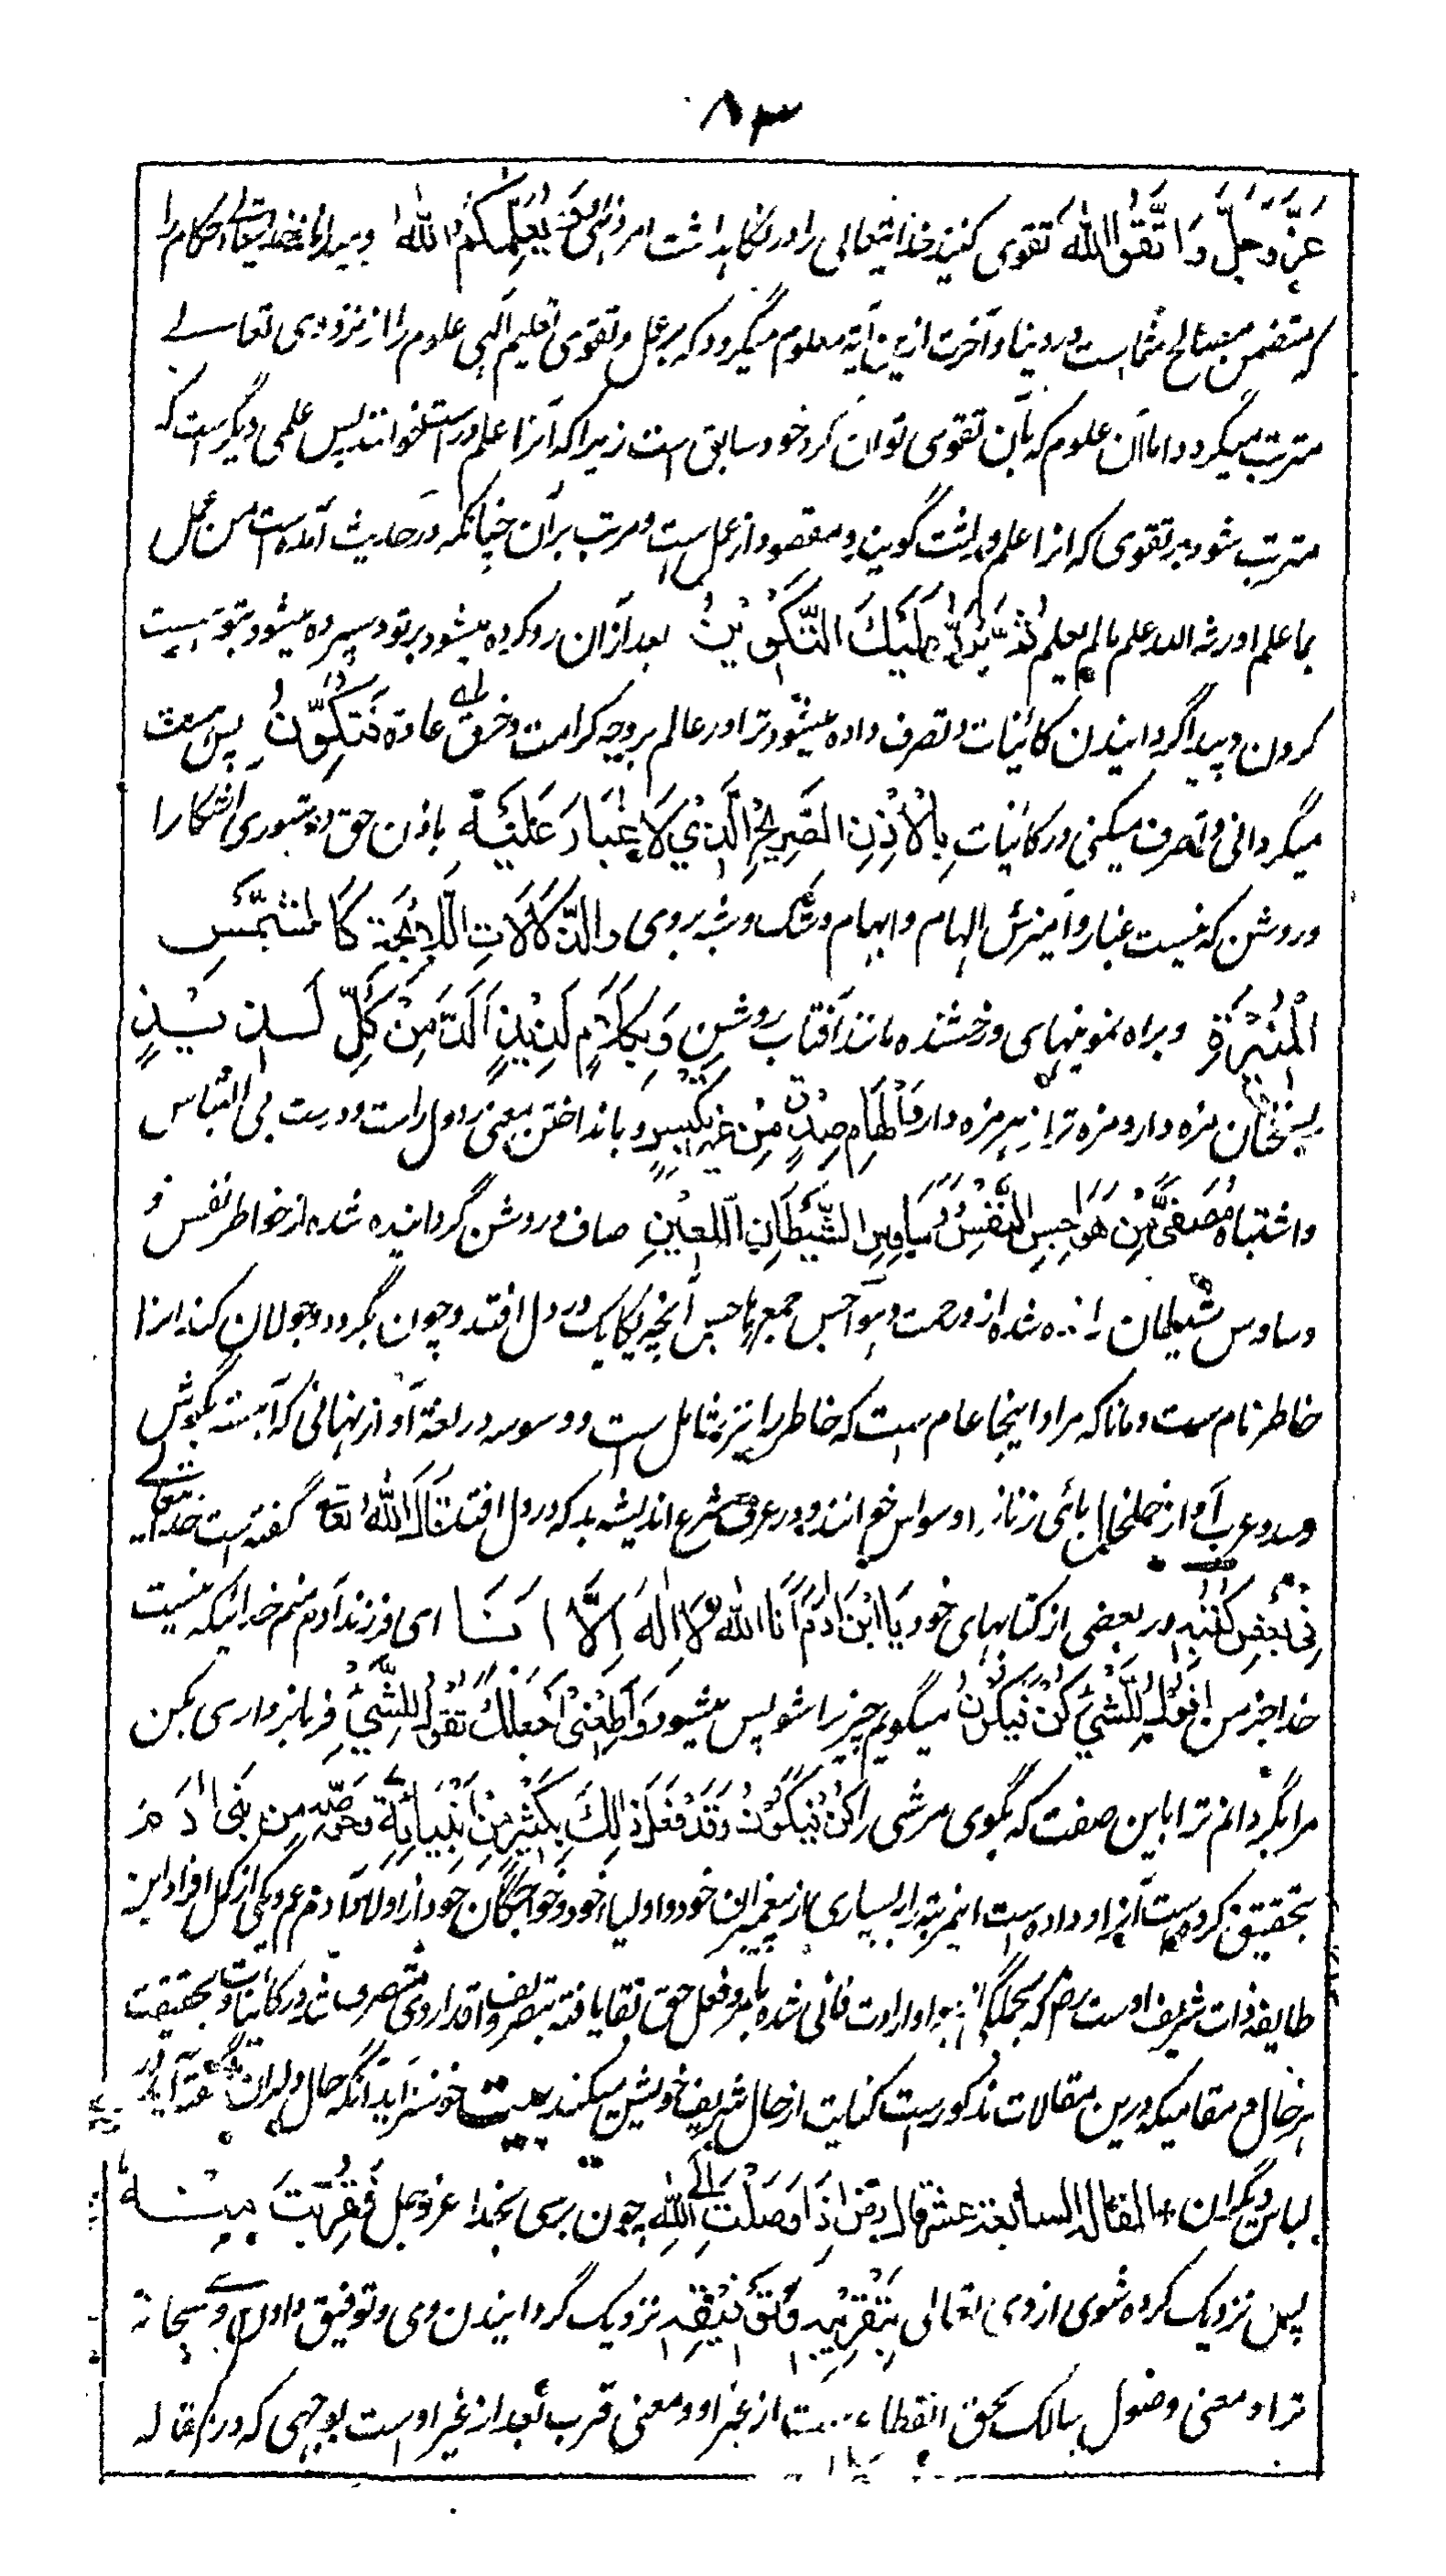 ۸۳
عَزَّ وَجَلَّ وَاتَّقُوا اللّٰهَ تقوی کنید خدایتعالی را در نگاہداشت امر و نہی وَيُعَلِّمُكُمُ اللّٰهُ و میداناند خدایتعالے احکام را
کہ متضمن مصالح شماست در دنیا و آخرت ازین آیة معلوم میگردد کہ بر عمل و تقوی تعلیم الٰہی علوم را از نزد وی تعالے
مترتب میگردد اما آن علوم کہ بآن تقوی توان کرد خود سابق است زیرا کہ آنرا علم دراست خوانند پس علمی دیگر است کہ
مترتب شود بر تقوی کہ انرا علم وراثت گویند و مقصود از عمل است و مرتب بر آن چنانکہ در حدیث آمدہ است من عمل
بما علم اورثه الله علم مالم یعلم ثُمَّ يُرَدُّ عَلَيْكَ التَّكْوِيْنُ بعد از آن رد کردہ میشود بر تو و سپردہ میشود بتو ہست
کردن و پیدا گردانیدن کائنات و تصرف دادہ میشود ترا در عالم بر وجہ کرامت و خرق عادة فَتُكَوِّنُ پس ہست
میگردانی و تصرف میکنی در کائنات بِالْاِذْنِ الصَّرِيْحِ الَّذِيْ لَا غُبَارَ عَلَيْهِ باذن حق و دستوری آشکارا
و روشن کہ نیست غبار و آمیزش الہام و ابہام و شک و شبہ بروی وَالدَّلَالَاتِ اللَّائِحَةِ كَالشَّمْسِ
الْمُنِيْرَةِ و براہ نمونیہای درخشندہ مانند آفتاب روشن وَبِكَلَامٍ لَذِيْذٍ اَلَذَّ مِنْ كُلِّ لَذِيْذٍ
بسخنان مزہ دار و مزہ تر از ہر مزہ دار وَاِلْهَامِ صِدْقٍ مِنْ غَيْرِ لَبْسٍ و بانداختن معنی در دل راست و درست بی التباس
و اشتباہ مُصَفًّى مِنْ هَوَاجِسِ النَّفْسِ وَوَسَاوِسِ الشَّيْطَانِ اللَّعِيْنِ صاف و روشن گردانیدہ شدہ از خواطر نفس و
وساوس شیطان راندہ شدہ از رحمت و ہواجس جمع ہاجس آنچہ یکایک در دل افتد و چون بگردد و جولان کند انرا
خاطر نام ست و مانا کہ مراد اینجا عام ست کہ خاطر را نیز شامل ست و وسوسہ در لغة آواز نہانی کہ آہستہ بگوش
رسد و عرب آواز خلخال پائی زنانرا وسواس خوانند و در عرف شرع اندیشہ بد کہ در دل افتد قَالَ اللّٰهُ تعا گفتہ است خدایتعالے
فِيْ بَعْضِ كُتُبِهٖ در بعضی از کتابہای خود يَا ابْنَ اٰدَمَ اَنَا اللّٰهُ لَا اِلٰهَ اِلَّا اَنَا ای فرزند آدم منم خدائیکہ نیست
خدا جز من اَقُوْلُ لِلشَّيْءِ كُنْ فَيَكُوْنُ میگویم چیز را شو پس میشود وَاَطِعْنِيْ اَجْعَلُكَ تَقُوْلُ لِلشَّيْءِ فرمانبرداری بکن
مرا بگردانم ترا باین صفت کہ بگوی مر شی را كُنْ فَيَكُوْنُ وَقَدْ فَعَلَ ذٰلِكَ بِكَثِيْرٍ مِنْ اَنْبِيَائِهٖ وَخَوَاصِّهٖ مِنْ بَنِيْ اٰدَمَ
بتحقیق کردہ ست آنرا و دادہ ست اینمرتبہ را بسیاری از پیغمبران خود و اولیاء خود و خواجگان خود از اولاد آدم عم و یکی از کمل افراد این
طایفہ ذات شریف اوست رض کہ از ہوا و ارادت فانی شدہ بامر و فعل حق بقا یافتہ بتصریف و اقدار وی متصرف شد در کاینات و بحقیقت
ہر حال و مقامیکہ درین مقالات مذکور ست کنایت از حال شریف خویش میکند بیت خوشتر آید آنگہ حال دلبران گفتہ آید در
لباس دیگران المقالة السابعة عشر قال رض اِذَا وَصَلْتَ اِلَى اللّٰهِ چون برسی بخدا عز و جل فَقُرِّبْتَ مِنْهُ
پس نزدیک کردہ شوی از وی تعالی بِتَقْرِيْبِهٖ وَتَوْفِيْقِهٖ نزدیک گردانیدن وی و توفیق دادن وی سبحانہ
ترا و معنی وصول سالک بحق انقطاع ست از غیر او و معنی قرب بعد از غیر اوست بوجہی کہ در مقالہ